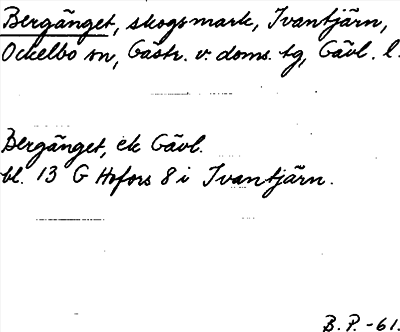 Bergänget, skogsmark, Ivantjärn,
Ockelbo sn, Gästr. v. doms. tg, Gävl. l.
Bergänget, ek Gävl.
bl. 13 G Hofors 8 i Ivantjärn.
B. P. -61.